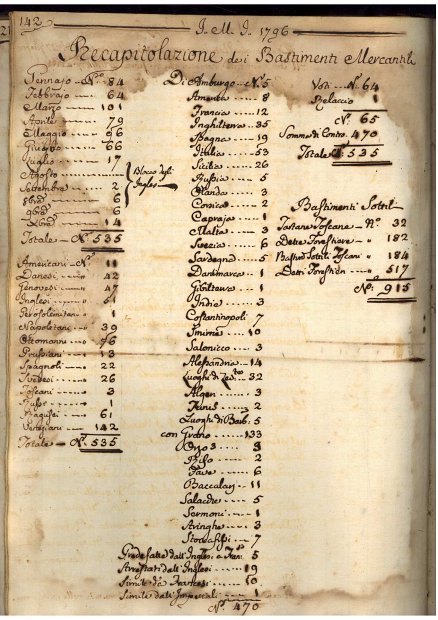 142
J. M. J. 1796
Recapitolazione dei Bastimenti Mercantili
Gennajo - No. 84
Febbrajo 64
Marzo 101
Aprile 79
Maggio 66
Giugno 66
Luglio 17
Agosto
Settembre 2
8bre 6
9bre 6
Xbre 14
Totale - No. 535
Blocco degli
Inglesi
Americani - No. 11
Danesi 42
Genovesi 47
Inglesi 51
Gerosolemitani 1
Napoletani 39
Ottomanni 76
Prussiani 13
Spagnoli 22
Svedesi 26
Toscani 3
Russi 1
Ragusei 61
Veneziani 142
Totale - No. 535
Di Amburgo - No. 5
America 8
Francia 12
Inghilterra 35
Spagna 19
Italia 53
Sicilia 26
Russia 5
Olanda 3
Corsica 2
Capraja 1
Malta 3
Svezia 6
Sardegna 5
Danimarca 1
Gibilterra 1
India 3
Costantinopoli 7
Smirne 10
Salonicco 3
Alessandria 14
Luoghi di 32
Algeri 3
Tunis 2
Luoghi di Barb. 5
con Grano 133
Orzo 3
Riso 2
Fave 6
Baccalari 11
Salacche 5
Sermoni 1
Aringhe 3
Stoccafissi 7
Predefatte dall'Inglesi a Fran. 5
Arrestati dall'Inglesi 19
Simile da Francesi 10
Simile dall'Imperiali 1
No. 470
Voti - No. 64
Belaccio 1
No. 65
Somma di Contro 470
Totale No. 535
Bastimenti Sottili
Tartane Toscane - No. 32
Dette Forestiere - 182
Bastimti Sottili Toscani 184
Detti Foresti 517
No. 915